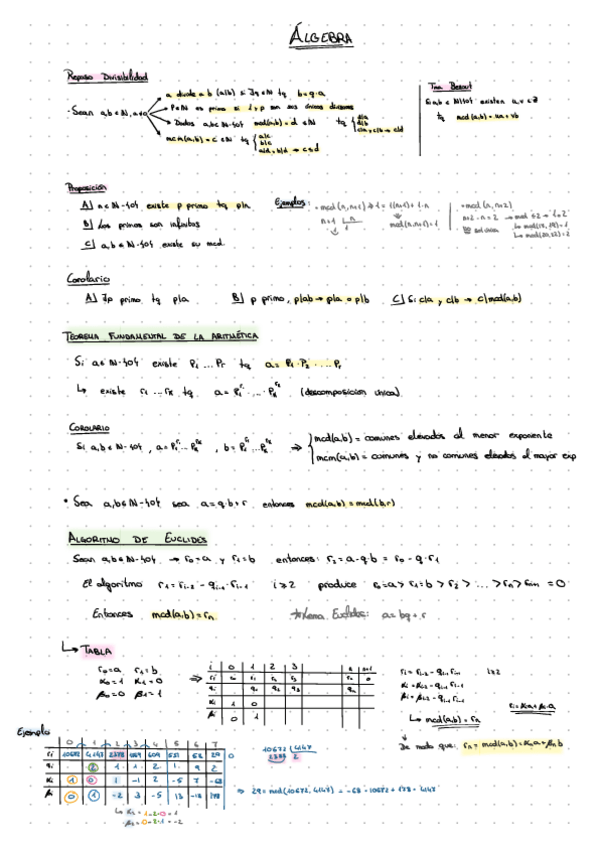 ÁLGEBRA
Repaso Divisibilidad
a divide a b (a|b) si ∃q∈N tq b=q·a
Sean a,b∈N, a≠0
P∈N es primo si 1 y p son sus únicos divisores
Dados a,b∈N-{0} mcd(a,b)=d∈N tq { d|a d|b c|a, c|b → c|d
mcm(a,b)=c∈N tq { a|c b|c
Tma Bezout
Si a,b∈N\{0} existen u,v∈Z
tq mcd(a,b)=ua+vb
Proposición
A] n∈N-{0} existe p primo tq p|n.
B] Los primos son infinitos
C] a,b∈N-{0} existe su mcd.
Ejemplos:
mcd(n,n+1)
mcd(n,n+1)=1
mcd(n,n+2)
n+2-n=2
Corolario
A] ∃p primo tq p|a
B] p primo, p|ab → p|a o p|b
C] Si c|a y c|b → c|mcd(a,b)
TEOREMA FUNDAMENTAL DE LA ARITMÉTICA
Si a∈N-{0} existe P₁...Pr tq a=P₁·P₂·...·Pr
↳ existe r₁...rk tq a=P₁^r₁·...·Pk^rk (descomposición única)
COROLARIO
Si a,b∈N-{0}, ⇒ { mcd(a,b)=comunes elevados al menor exponente
mcm(a,b)=comunes y no comunes elevados al mayor exp
* Sea a,b∈N-{0} sea a=q·b+r entonces mcd(a,b)=mcd(b,r)
ALGORITMO DE EUCLIDES
Sean a,b∈N-{0} → r₀=a y r₁=b entonces: r₂=a-q·b=r₀-q·r₁
El algoritmo i≥2 produce r₀=a>r₁=b>r₂>...>rn>rn+1=0
Entonces mcd(a,b)=rn
Lema Euclides: a=bq+r
↳ TABLA
r₀=a r₁=b
α₀=1 α₁=0
β₀=0 β₁=1
i 0 1 2 3 n n+1
ri r₀ r₁ r₂ r₃ rn 0
qi q₁ q₂ q₃ qn
αi 1 0
βi 0 1
ri=ri-2-qi-1·ri-1 i≥2
αi=αi-2-qi-1·αi-1
βi=βi-2-qi-1·βi-1
↳ mcd(a,b)=rn
De modo que: rn=mcd(a,b)=αn·a+βn·b
Ejemplo
0 1 2 3 4 5 6 7
ri 10672 4147 2378 1769 609 551 58 29 0
qi 2 1 1 2 1 9 2
αi 1 0 1 -1 2 -5 7 -68
βi 0 1 -2 3 -5 13 -18 175
10672 | 4147
2378 2
⇒ 29=mcd(10672,4147)=-68·10672+175·4147
↳ α₂=1-2·0=1
β₂=0-2·1=-2